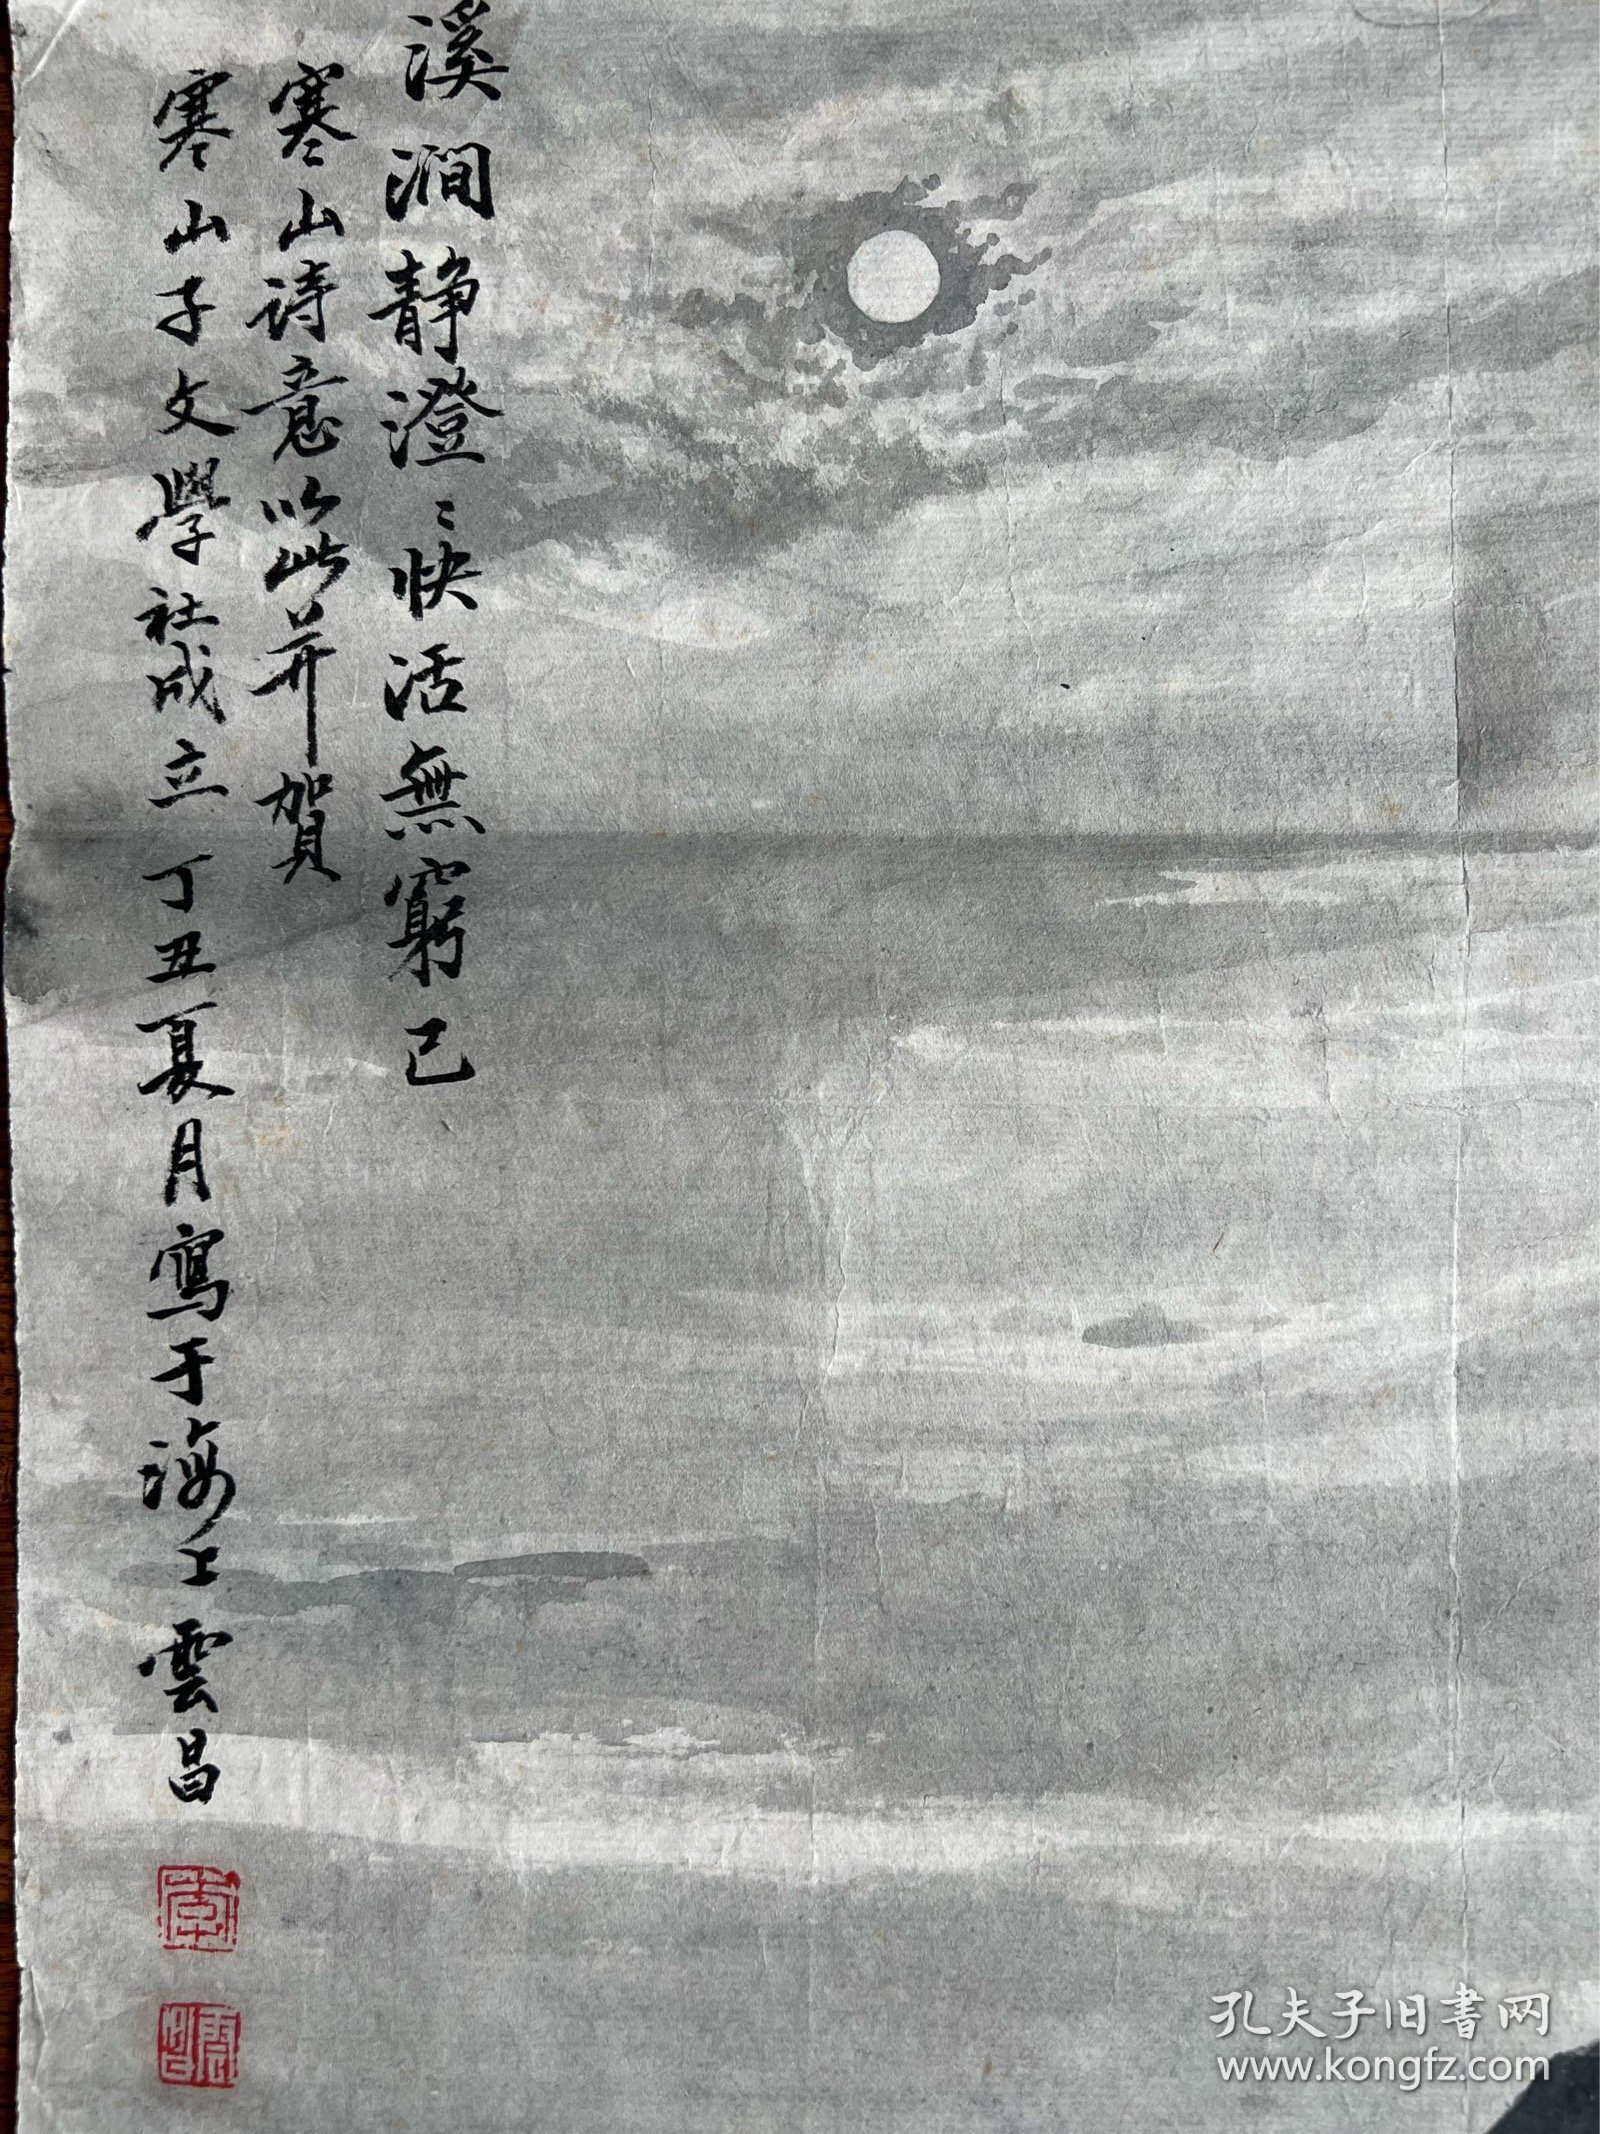 溪澗静澄〻快活無窮已
寒山诗意以此并賀
寒山子文學社成立 丁丑夏月寫于海上雲昌
孔夫子旧書网
www.kongfz.com